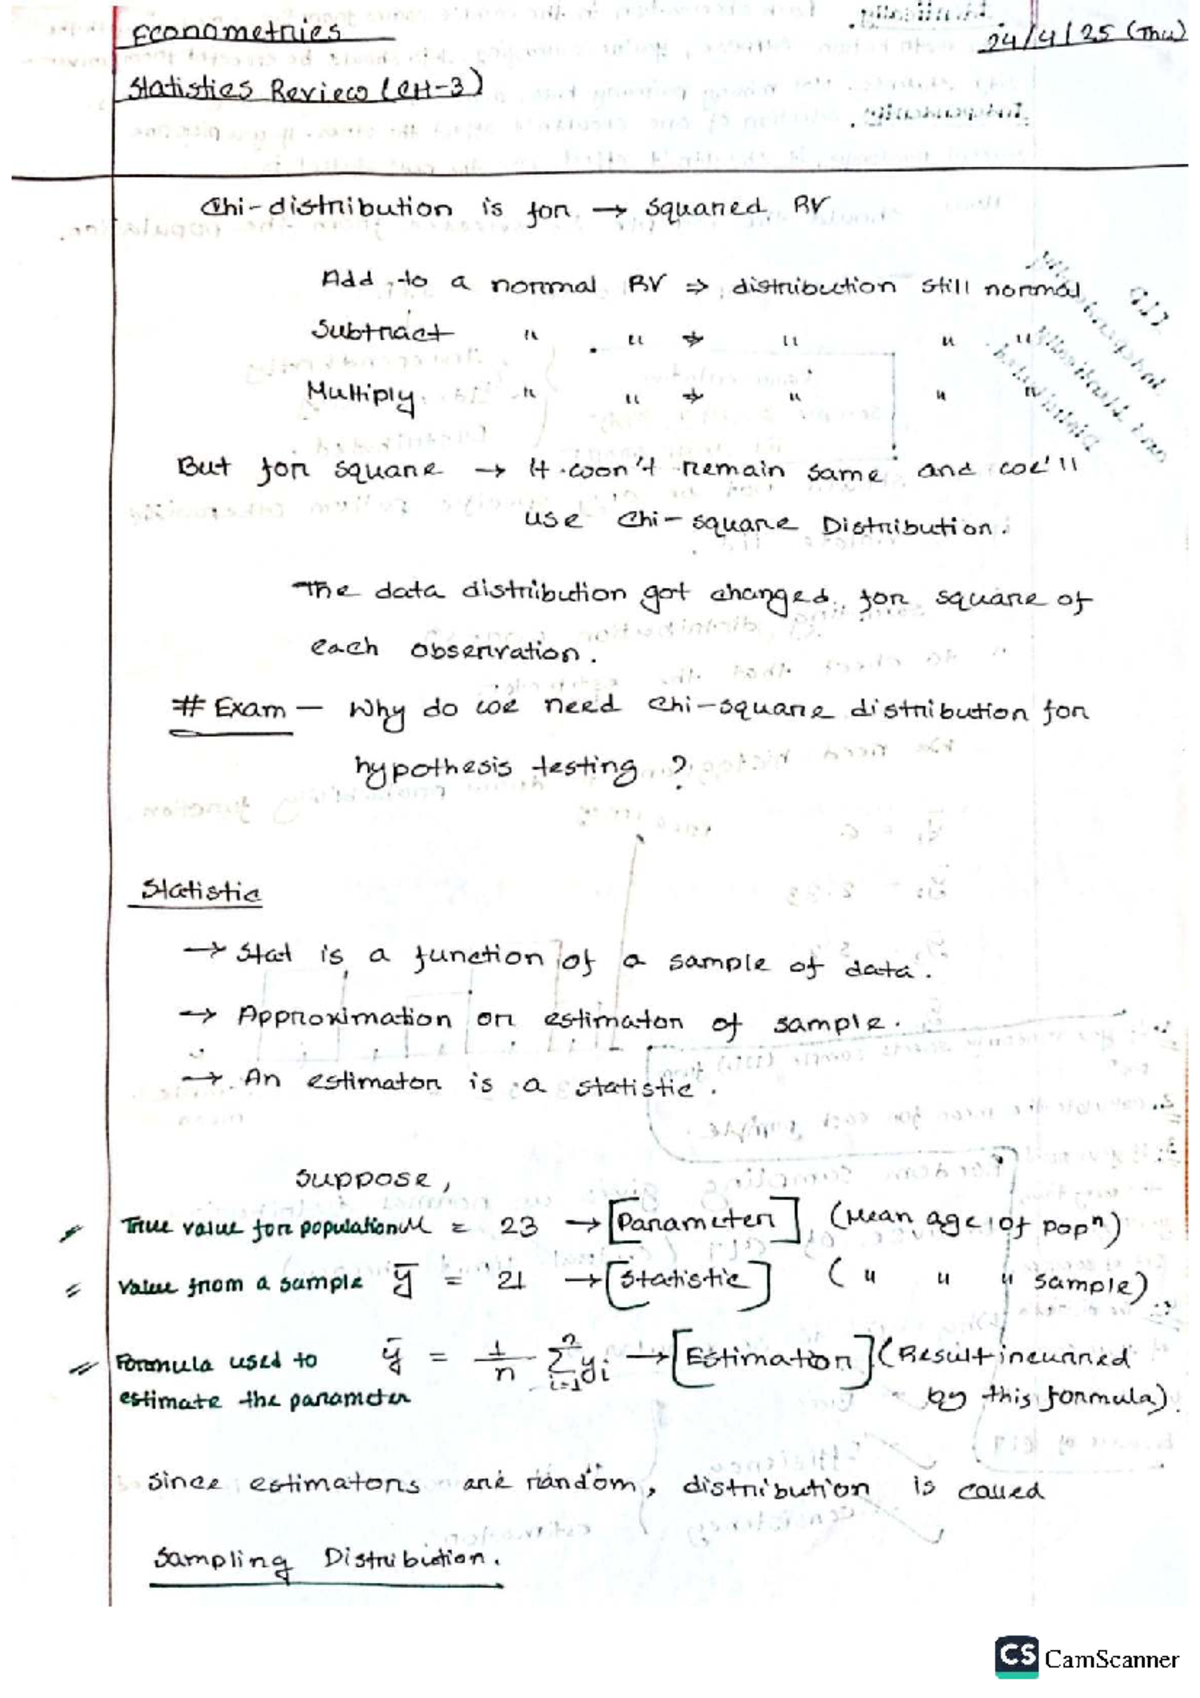 Econometrics
24/4/25 (Thu)
Statistics Review (CH-3)
Chi-distribution is for → squared RV
Add to a normal RV ⇒ distribution still normal
Subtract " " ⇒ " " "
Multiply " " ⇒ " " "
But for square → It won't remain same and we'll
use Chi-square Distribution.
The data distribution got changed for square of
each observation.
# Exam — Why do we need Chi-square distribution for
hypothesis testing ?
Statistic
→ Stat is a function of a sample of data.
→ Approximation or estimator of sample.
→ An estimator is a statistic.
Suppose,
True value for population M = 23 → [Parameter] (Mean age of popⁿ)
Value from a sample ȳ = 21 → [Statistic] ( " " " sample)
Formula used to ȳ = 1/n Σᵢ₌₁ⁿ yᵢ → [Estimator] (Result incurred
estimate the parameter by this formula).
Since estimators are random, distribution is called
Sampling Distribution.
CS CamScanner